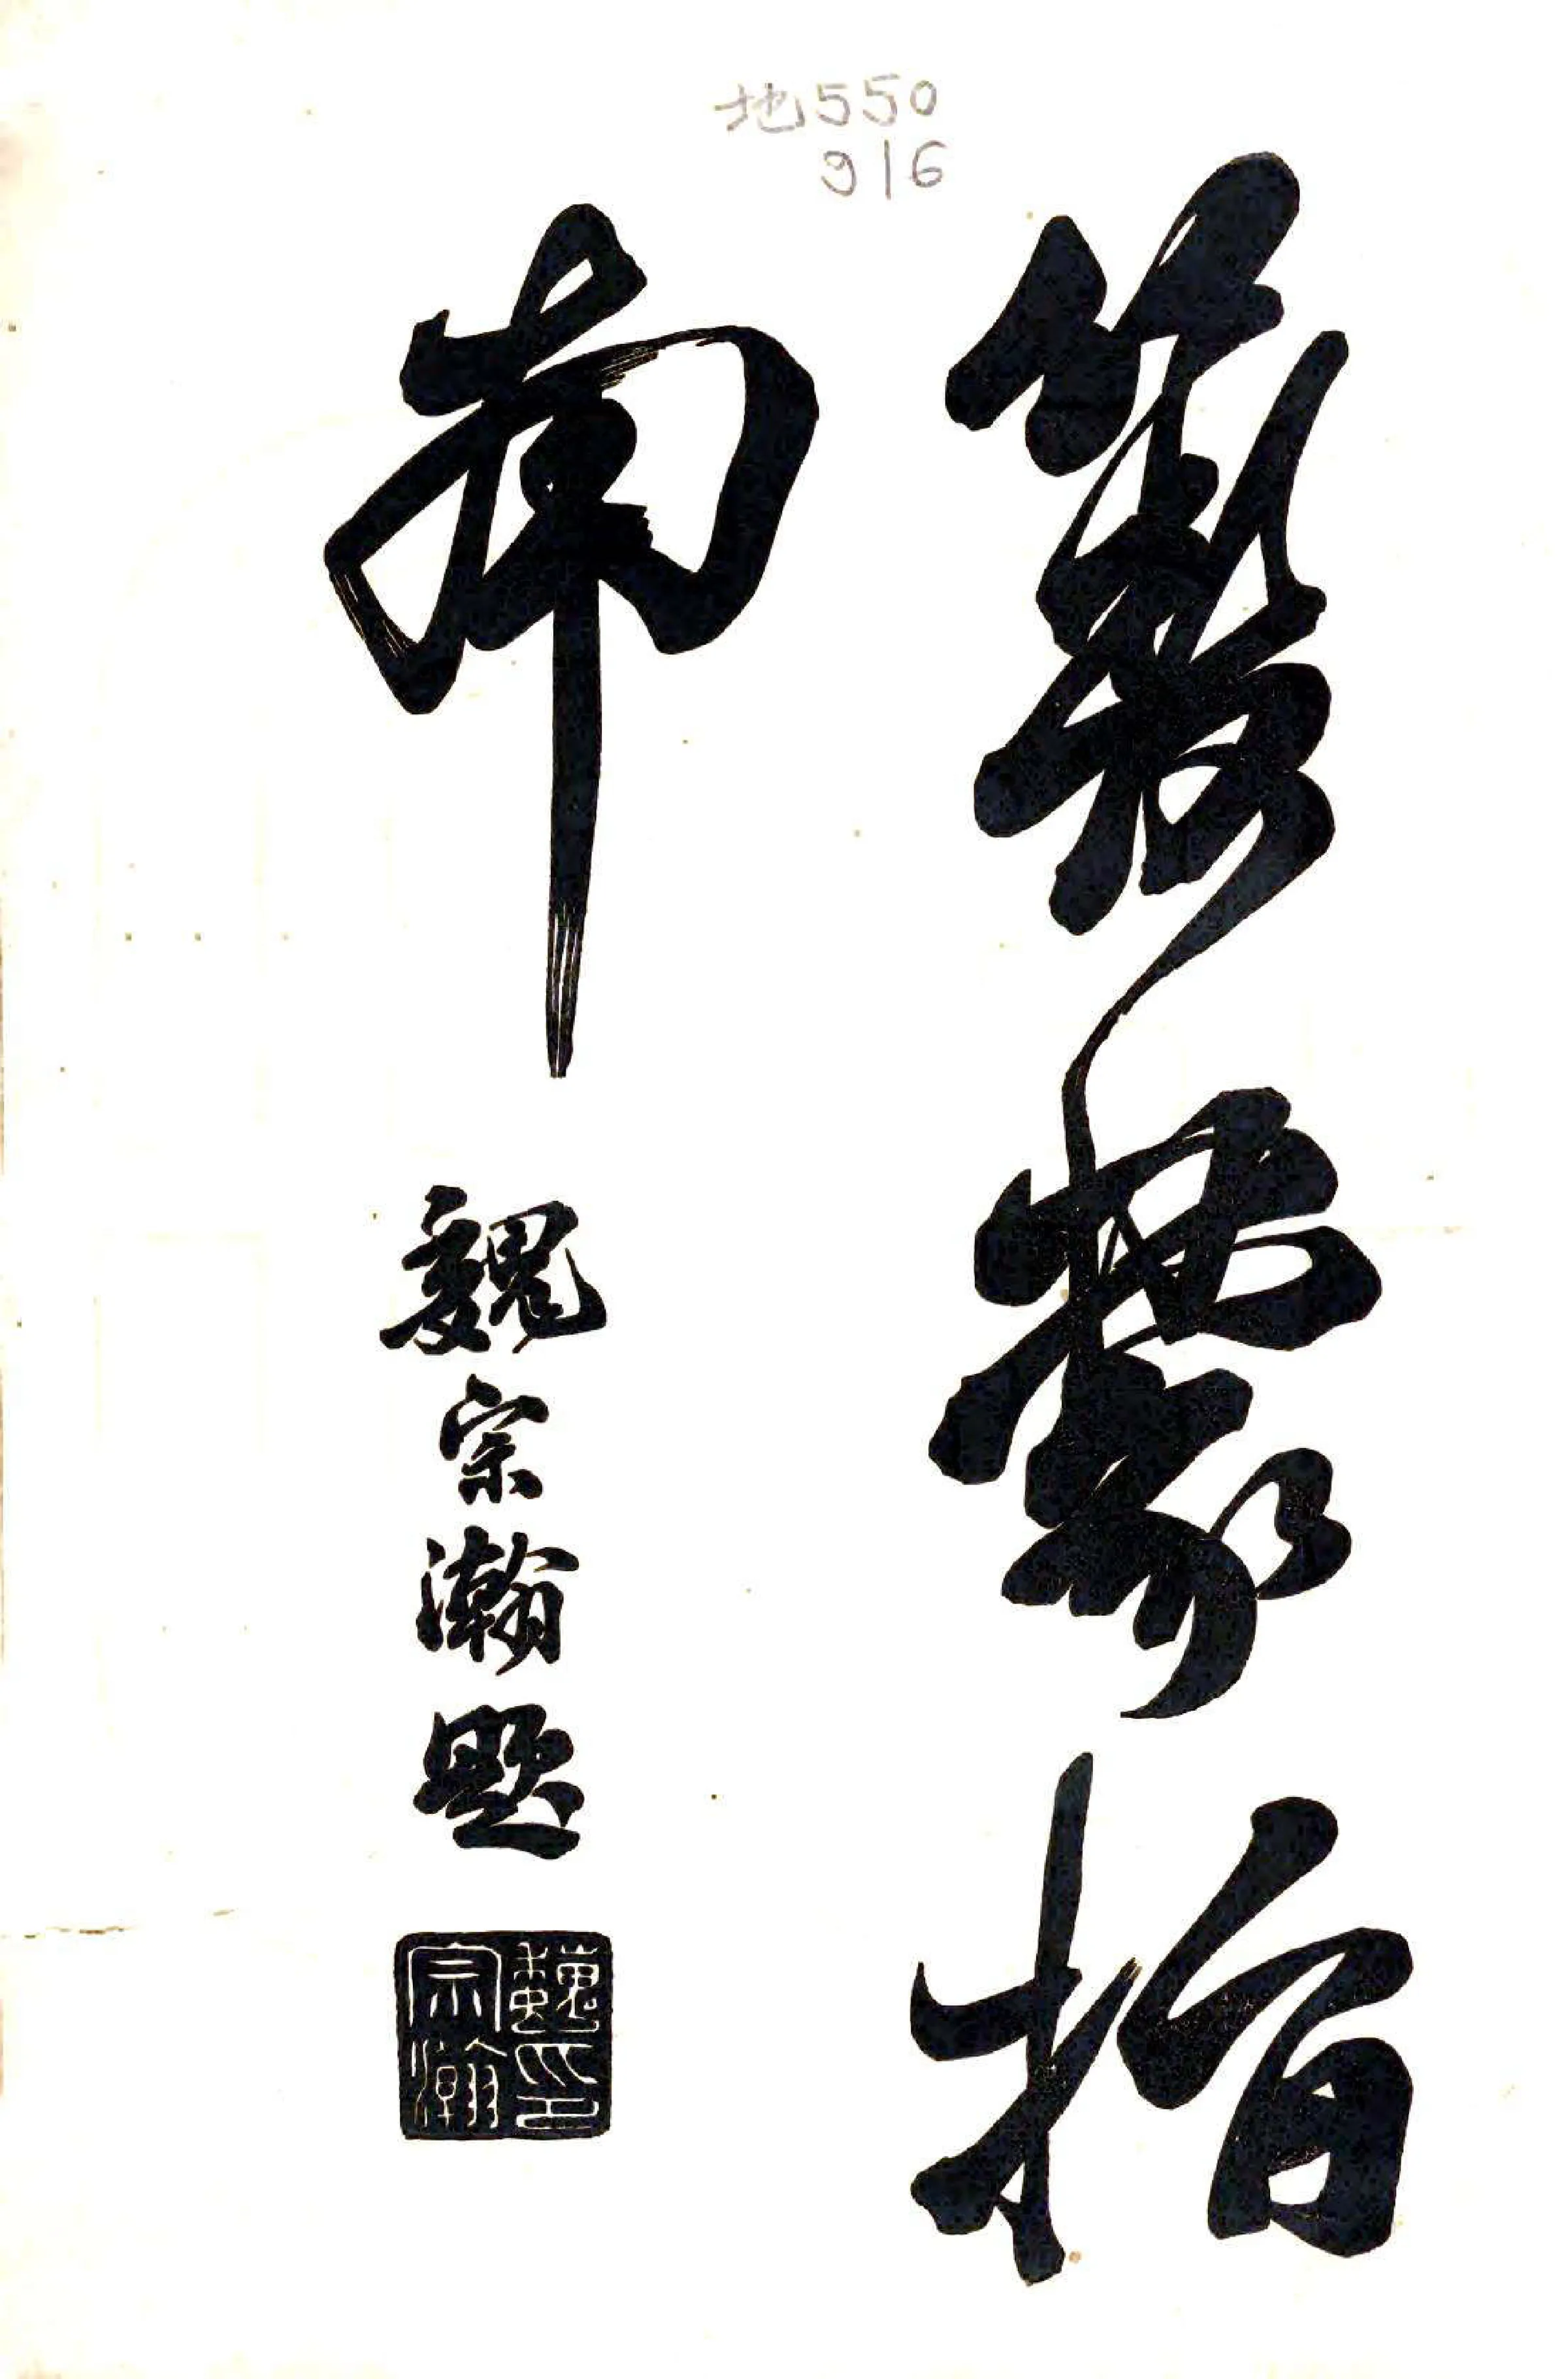 地550
916
蒙指
南
魏宗瀚題
魏印
宗瀚